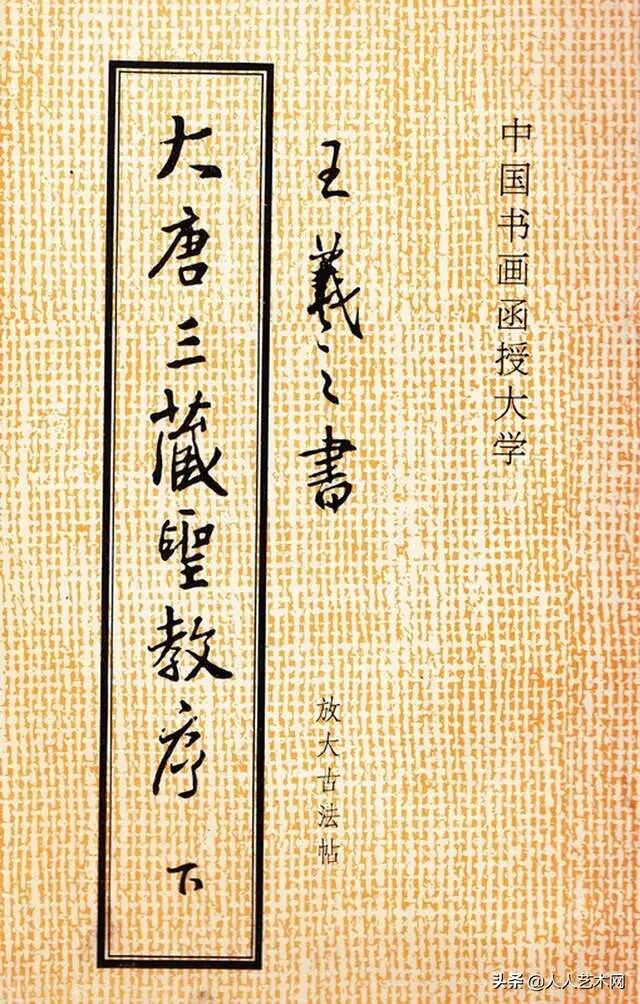 中国书画函授大学
王羲之書
放大古法帖
大唐三藏聖教序 下
头条@人人艺术网